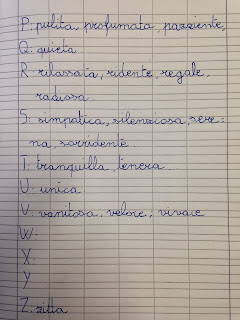 P: pulita, profumata, paziente,
Q: quieta
R: rilassata, ridente, regale,
radiosa
S: simpatica, silenziosa, sere-
na, sorridente.
T: tranquilla, tenera
U: unica
V: vanitosa, veloce, vivace
W:
X:
Y
Z: zitta